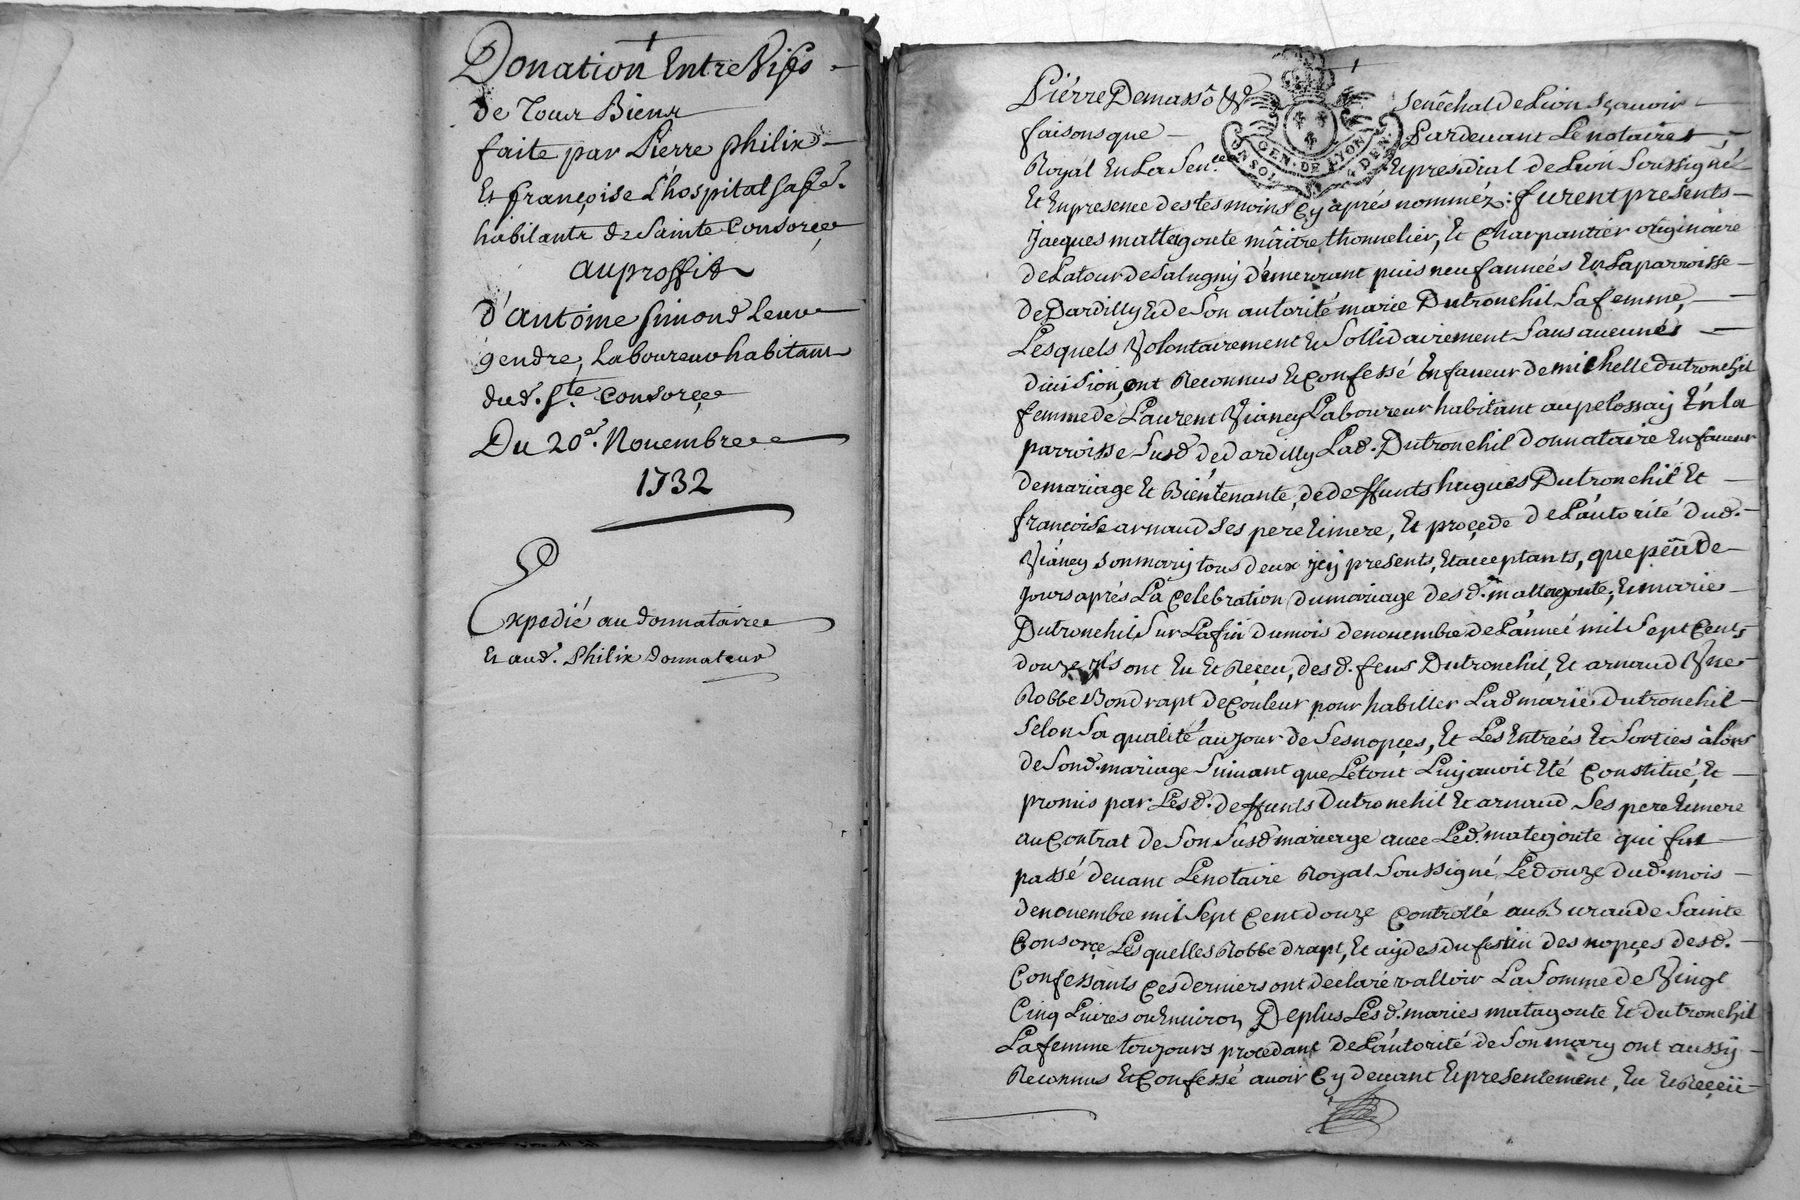 Donation Entre Vifs
de Tous Biens
faite par Pierre Philix
Et françoise L'hospital Safe.
habitants de Sainte Consorce
au proffit
d'antoine Simond Leur
gendre, Laboureur habitant
dud. Ste. Consorce
Du 20e. Novembre
1732
Expedié au donnataire
Et aud. Philix donnateur
Pierre Demasso &
Senêchal de Lion Sçavoir
faisons que
Pardevant Le notaire
GEN. DE LYON
Royal En La Sen.cée
Et presidial de Lion Soussigné
Et En presence des tesmoins Cy après nommez: furent presents
Jacques mattagoute mâitre thonnelier, Et Charpantier originaire
de Latour de Salvgny demeurant puis neuf anneés En La parroisse
de Dardilly & de Son autorité marie Dutronchil Sa femme,
Lesquels Volontairement & Sollidairement Sans aucunes
division, ont Reconnus & Confessé En faveur de michelle dutronchil
femme de Laurent Vianey Laboureur habitant au pelossay En la
parroisse Susd. de dardilly Lad. Dutronchil donnataire En faveur
de mariage Et Biéntenante, de deffunts hugues Dutronchil Et
françoise arnaud Ses pere & mere, Et proçede de L'autorité dud.
Vianey Son mary tous deux jcy presents, Et acceptants, que peü de
Jours après La Celebration du mariage des d. mattagoute, & marie
Dutronchil Sur La fin du mois de novembre de L'anneé mil Sept Cents
douze jls ont Eu Et Reçeu, des d. feus Dutronchil, Et arnaud Vne
Robbe Bon drapt de Couleur pour habiller Lad marie dutronchil
Selon Sa qualité au jour de Ses nopçes, Et Les Entreés Et Sorties àlors
de Sond. mariage Suivant que Letout Luy avoit Eté Constitué, Et
promis par Les d. deffunts Dutronchil Et arnaud Ses pere & mere
au Contrat de Son Susd mariage avec Led. matagoute qui fut
passé devant Le notaire Royal Soussigné, Le douze dud. mois
de novembre mil Sept Cent douze Controllé au Bureau de Sainte
Consorçe Lesquelles Robbe drapt, Et aydes du festin des nopçes desd.
Confessants Ces derniers ont declaré valloir La Somme de Vingt
Cinq Livres ou Environ, Deplus Les d. mariés matagoute Et dutronchil
La femme toujours procedant de L'autorité de Son mary ont aussy
Reconnus Et Confessé avoir Cy devant & presentement, Eu & Reçeü